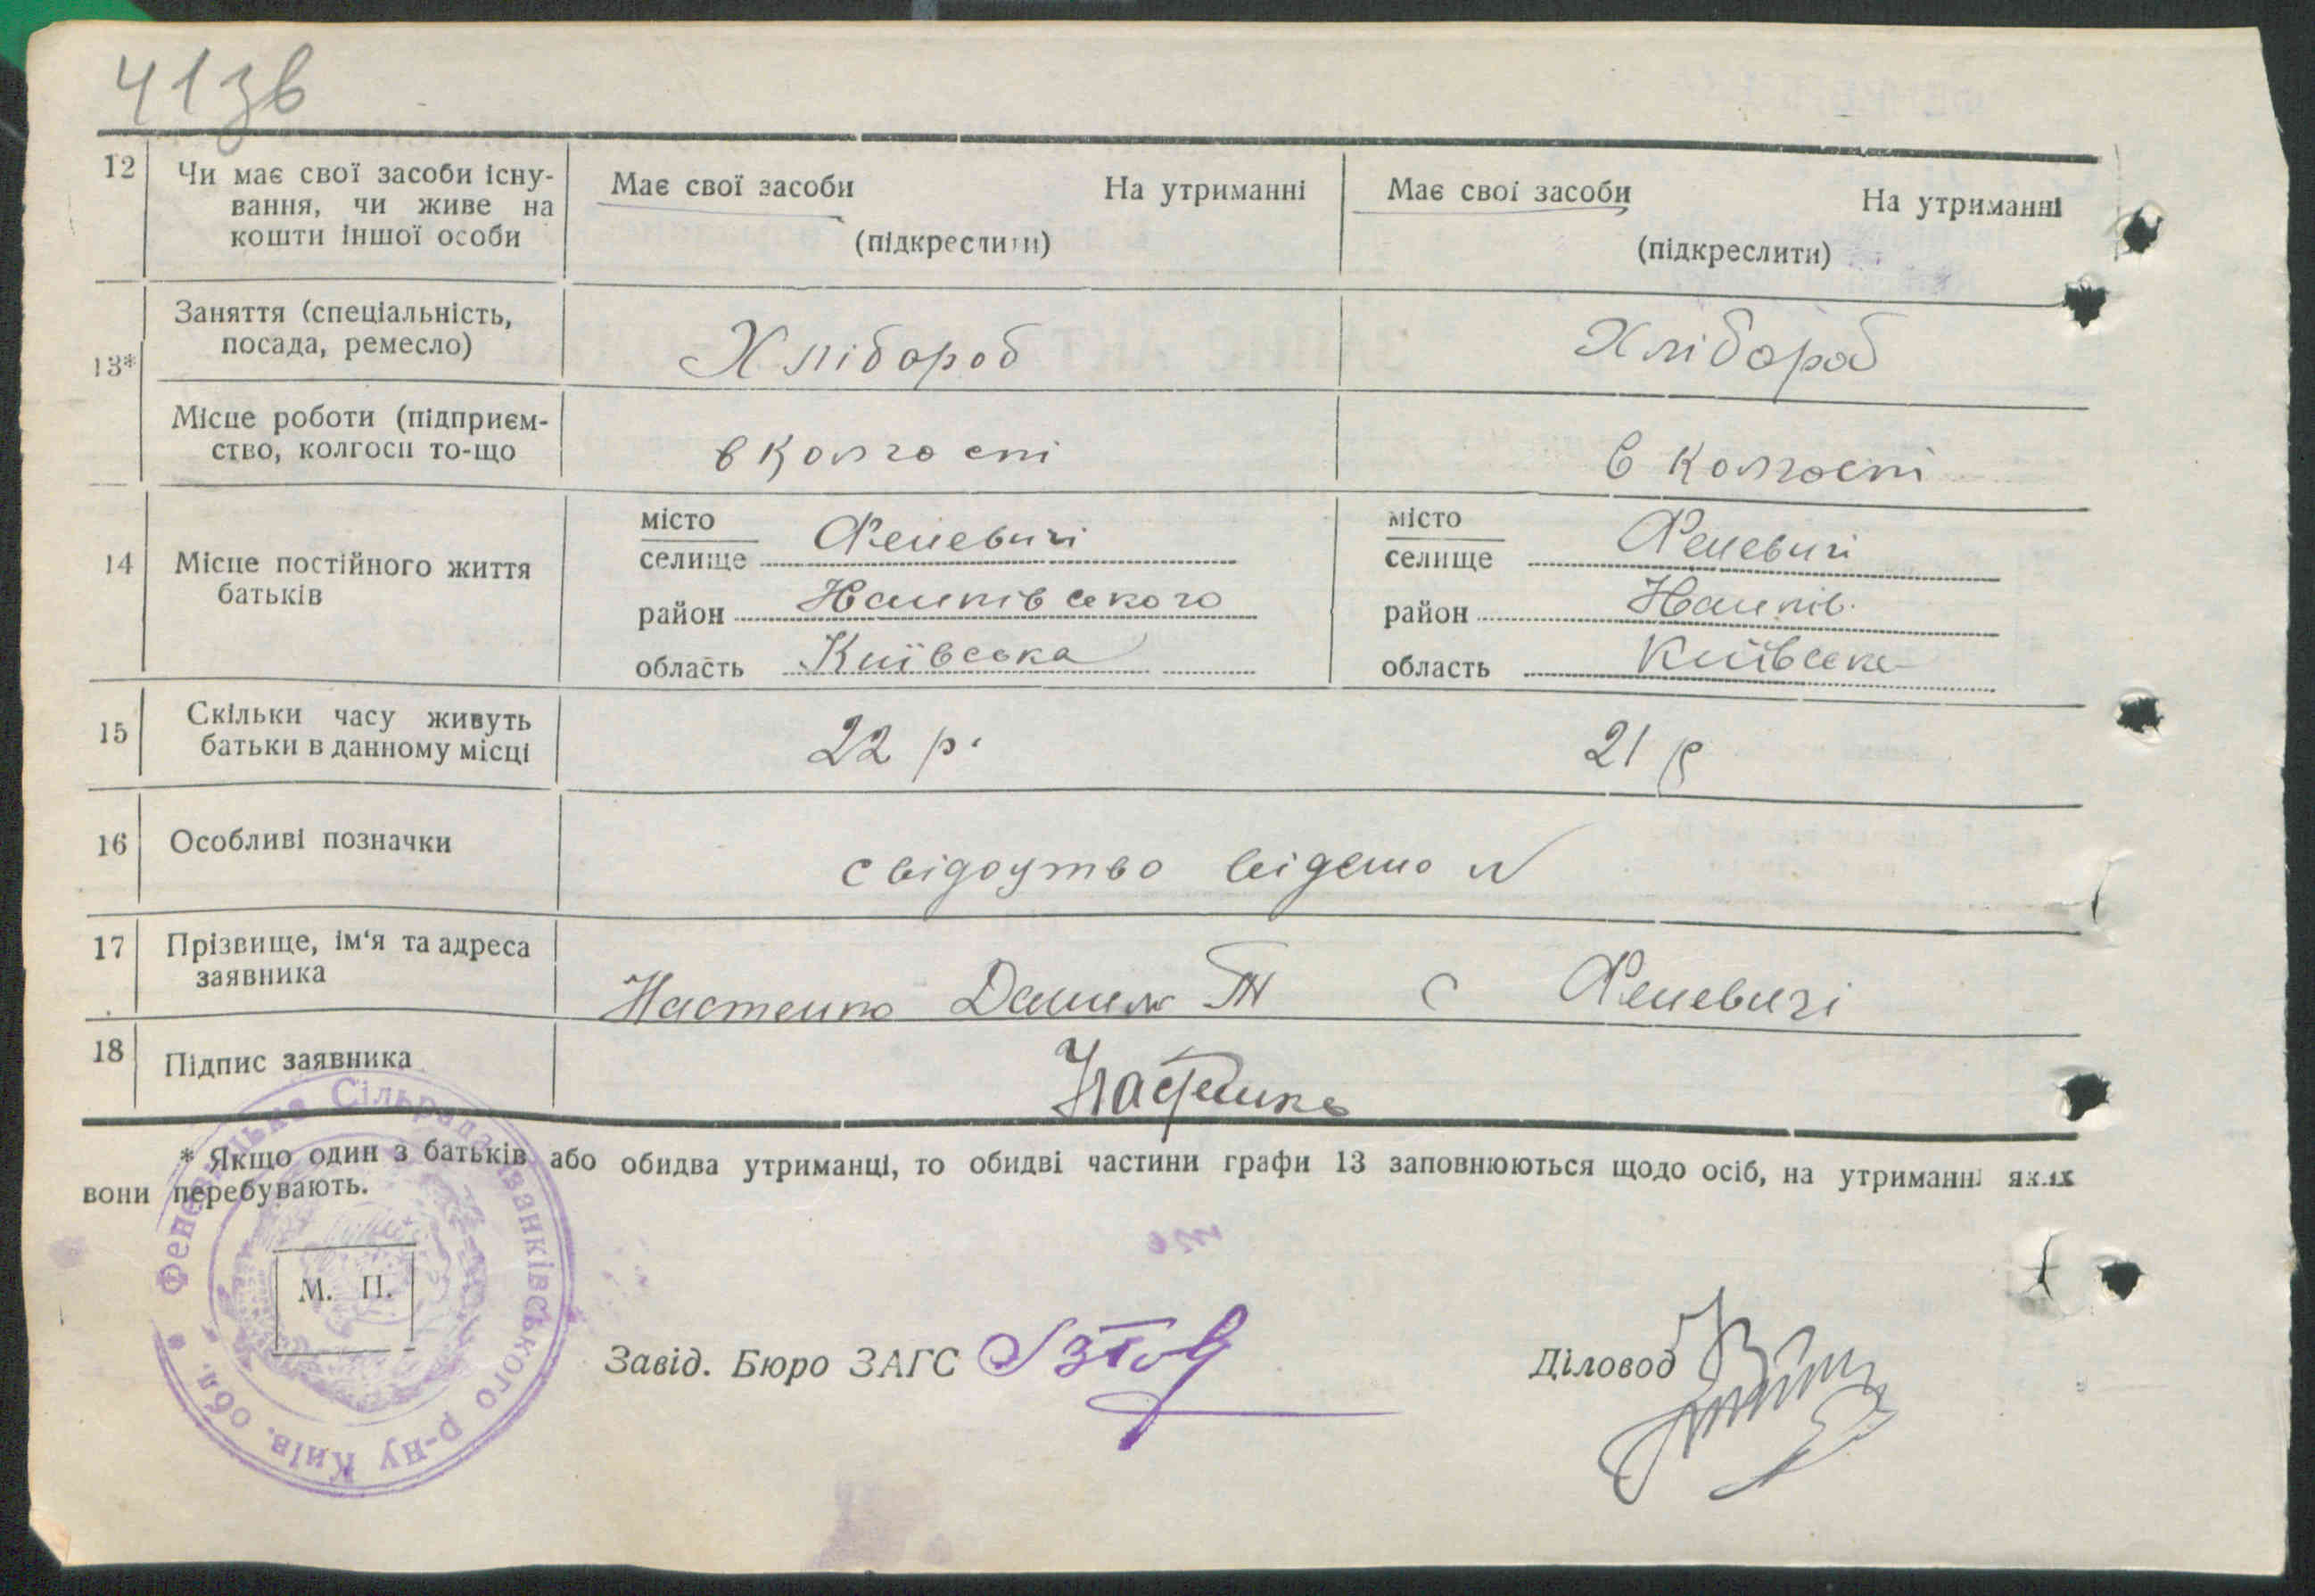 41зв
12 Чи має свої засоби існу-
вання, чи живе на
кошти іншої особи
Має свої засоби На утриманні
(підкреслити)
Має свої засоби На утриманні
(підкреслити)
13* Заняття (спеціальність,
посада, ремесло)
Хлібороб
Хлібороб
Місце роботи (підприєм-
ство, колгосп то-що
в колгоспі
в колгоспі
14 Місце постійного життя
батьків
місто
селище Феневичі
район Іванківського
область Київська
місто
селище Феневичі
район Іванків.
область Київська
15 Скільки часу живуть
батьки в данному місці
22 р.
21 р
16 Особливі позначки
свідоцтво видано N
17 Прізвище, ім'я та адреса
заявника
Настенко Данило Т с Феневичі
18 Підпис заявника
Настенко
* Якщо один з батьків або обидва утриманці, то обидві частини графи 13 заповнюються щодо осіб, на утриманні яких
вони перебувають.
Феневицька Сільрада Іванківського р-ну Київ. обл.
М. П.
Завід. Бюро ЗАГС
Діловод